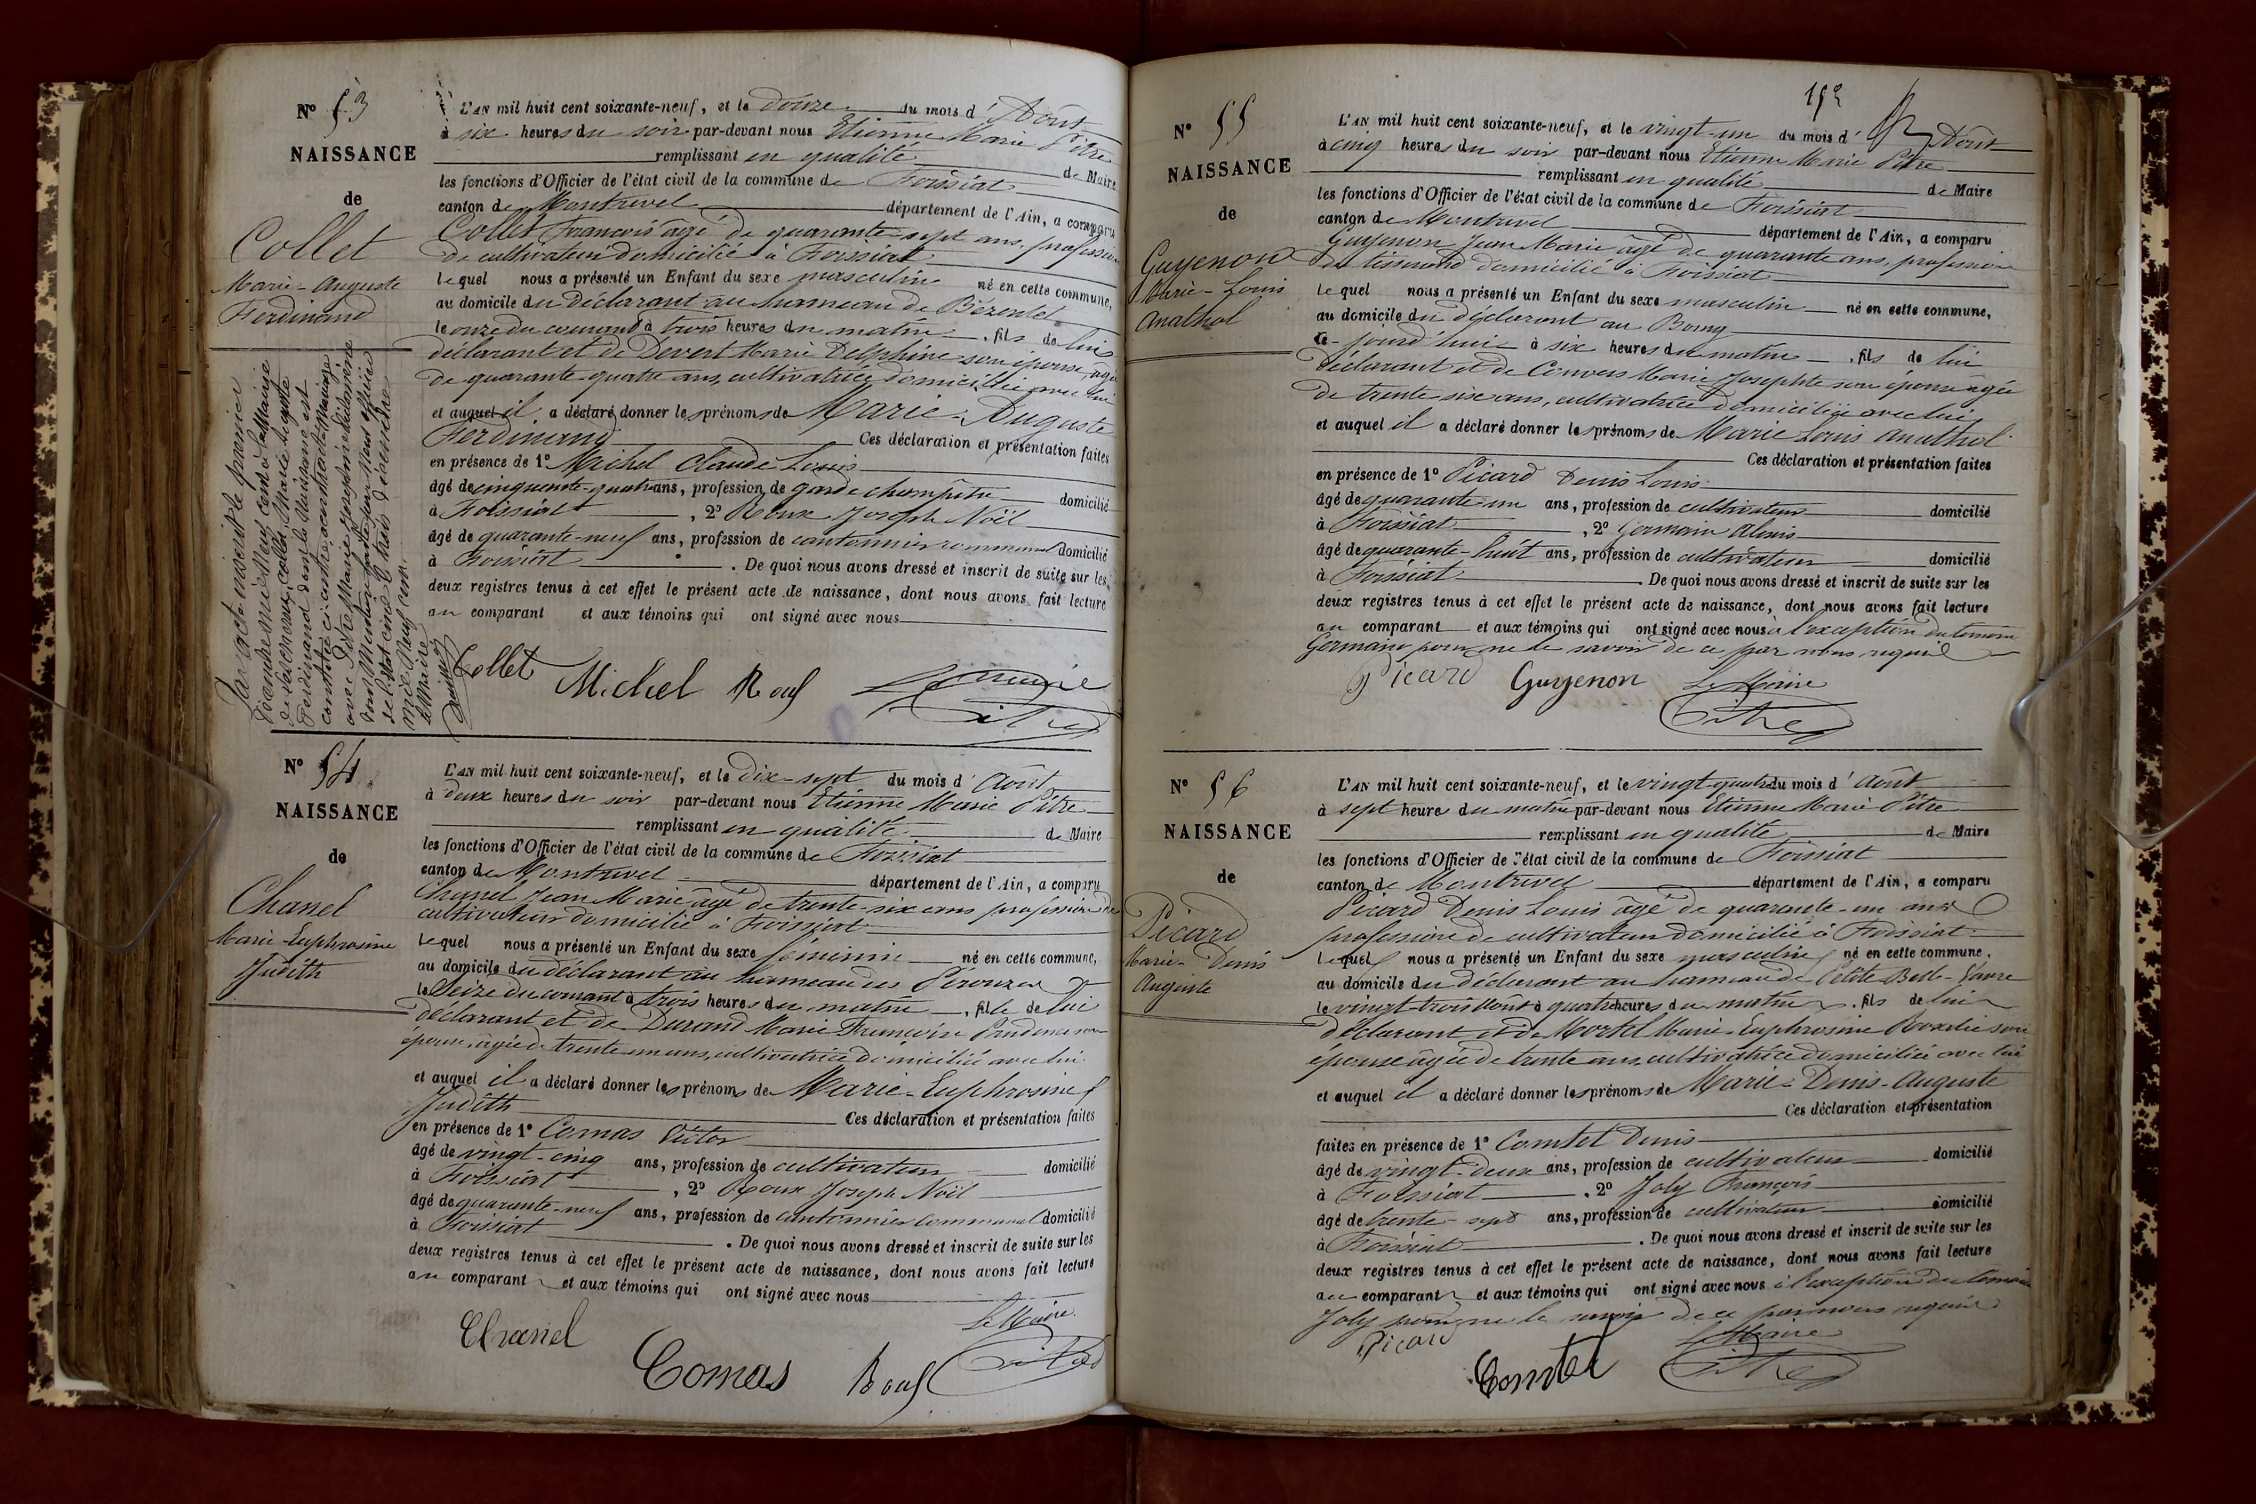 Nº 53
NAISSANCE
de
Collet
Marie-Auguste
Ferdinand
L'AN mil huit cent soixante-neuf, et le douze du mois d'Août
à six heures du soir par-devant nous Etienne Marie Pitre
remplissant en qualité de Maire
les fonctions d'Officier de l'état civil de la commune de Foissiat
canton de Montrevel département de l'Ain, a comparu
Collet François âgé de quarante-sept ans, profession
de cultivateur domicilié à Foissiat
lequel nous a présenté un Enfant du sexe masculin né en cette commune,
au domicile du déclarant au hameau de Bézentet
le onze du courant à trois heures du matin, fils de lui
déclarant et de Devert Marie Delphine son épouse, agée
de quarante-quatre ans, cultivatrice domiciliée avec lui
et auquel il a déclaré donner les prénoms de Marie-Auguste
Ferdinand Ces déclaration et présentation faites
en présence de 1º Michel Claude Louis
âgé de cinquante-quatre ans, profession de garde champêtre domicilié
à Foissiat, 2º Roux Joseph Noël
âgé de quarante-neuf ans, profession de cantonnier communal domicilié
à Foissiat. De quoi nous avons dressé et inscrit de suite sur les
deux registres tenus à cet effet le présent acte de naissance, dont nous avons fait lecture
au comparant et aux témoins qui ont signé avec nous
Par acte inscrit le premier
Décembre mil neuf cent à la Mairie
Collet, Marie Auguste
Ferdinand dont la Naissance est
constatée ci-contre, a contracté Mariage
avec
dont Mention faite par Nous officier
de l'Etat civil le trois décembre
mil Neuf cent.
Le Maire
Collet Michel Roux Le Maire
Pitre
Nº 54
NAISSANCE
de
Chanel
Marie-Euphrosine
Judith
L'AN mil huit cent soixante-neuf, et le dix-sept du mois d'Août
à deux heures du soir par-devant nous Etienne Marie Pitre
remplissant en qualité de Maire
les fonctions d'Officier de l'état civil de la commune de Foissiat
canton de Montrevel département de l'Ain, a comparu
Chanel Jean Marie âgé de trente-six ans profession de
cultivateur domicilié à Foissiat
lequel nous a présenté un Enfant du sexe féminin né en cette commune,
au domicile du déclarant au hameau des Pérouzes
le Seize du courant à trois heures du matin, fille de lui
déclarant et de Durand Marie Françoise Prudence son
épouse, agée de trente un ans, cultivatrice domiciliée avec lui
et auquel il a déclaré donner les prénoms de Marie-Euphrosine
Judith Ces déclaration et présentation faites
en présence de 1º Comas Victor
âgé de vingt-cinq ans, profession de cultivateur domicilié
à Foissiat, 2º Roux Joseph Noël
âgé de quarante-neuf ans, profession de cantonnier communal domicilié
à Foissiat. De quoi nous avons dressé et inscrit de suite sur les
deux registres tenus à cet effet le présent acte de naissance, dont nous avons fait lecture
au comparant et aux témoins qui ont signé avec nous
Le Maire
Chanel Comas Roux Pitre
152
Nº 55
NAISSANCE
de
Guyenon
Marie-Louis
Anathol
L'AN mil huit cent soixante-neuf, et le vingt-un du mois d'Août
à cinq heures du soir par-devant nous Etienne Marie Pitre
remplissant en qualité de Maire
les fonctions d'Officier de l'état civil de la commune de Foissiat
canton de Montrevel département de l'Ain, a comparu
Guyenon Jean Marie âgé de quarante ans, profession
de tisserand domicilié à Foissiat
lequel nous a présenté un Enfant du sexe masculin né en cette commune,
au domicile du déclarant au Bourg
ce-jourd'hui à six heures du matin, fils de lui
déclarant et de Convers Marie Josephte son épouse agée
de trente six ans, cultivatrice domiciliée avec lui
et auquel il a déclaré donner les prénoms de Marie Louis Anathol
Ces déclaration et présentation faites
en présence de 1º Picard Denis Louis
âgé de quarante-un ans, profession de cultivateur domicilié
à Foissiat, 2º Germain Alexis
âgé de quarante-huit ans, profession de cultivateur domicilié
à Foissiat. De quoi nous avons dressé et inscrit de suite sur les
deux registres tenus à cet effet le présent acte de naissance, dont nous avons fait lecture
au comparant et aux témoins qui ont signé avec nous à l'exception du témoin
Germain pour ne le savoir de ce par nous requis
Picard Guyenon Le Maire
Pitre
Nº 56
NAISSANCE
de
Picard
Marie-Denis
Auguste
L'AN mil huit cent soixante-neuf, et le vingt-quatre du mois d'Août
à sept heures du matin par-devant nous Etienne Marie Pitre
remplissant en qualité de Maire
les fonctions d'Officier de l'état civil de la commune de Foissiat
canton de Montrevel département de l'Ain, a comparu
Picard Denis Louis âgé de quarante-un ans
profession de cultivateur domicilié à Foissiat
lequel nous a présenté un Enfant du sexe masculin né en cette commune,
au domicile du déclarant au hameau de Petite Belle-Vavre
le vingt-trois Août à quatre heures du matin, fils de lui
déclarant et de Mortel Marie-Euphrosine Rosalie son
épouse âgée de trente ans, cultivatrice domiciliée avec lui
et auquel il a déclaré donner les prénoms de Marie-Denis-Auguste
Ces déclaration et présentation
faites en présence de 1º Comtet Denis
âgé de vingt-deux ans, profession de cultivateur domicilié
à Foissiat, 2º Joly François
âgé de trente-sept ans, profession de cultivateur domicilié
à Foissiat. De quoi nous avons dressé et inscrit de suite sur les
deux registres tenus à cet effet le présent acte de naissance, dont nous avons fait lecture
au comparant et aux témoins qui ont signé avec nous à l'exception du témoin
Joly pour ne le savoir de ce par nous requis
Picard Comtet Le Maire
Pitre